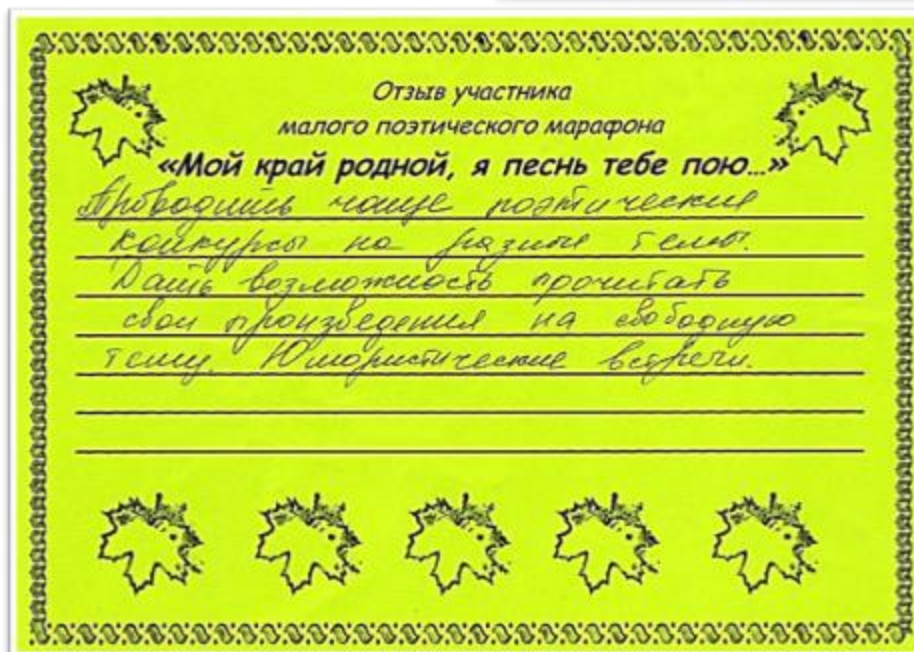 Отзыв участника
малого поэтического марафона
«Мой край родной, я песнь тебе пою...»
Проводить чаще поэтические
конкурсы на разные темы.
Дать возможность прочитать
свои произведения на свободную
тему. Юмористические встречи.